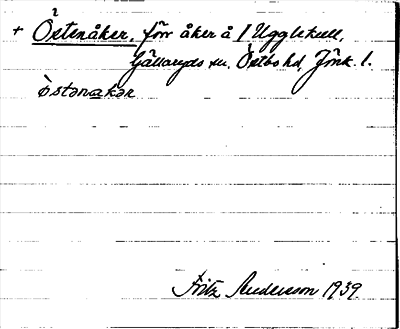 + Östenåker, förr åker å 1 Ugglekull,
Gällaryds sn. Östbo hd, Jönk. l.
östənakər
Fritz Anderson 1939.